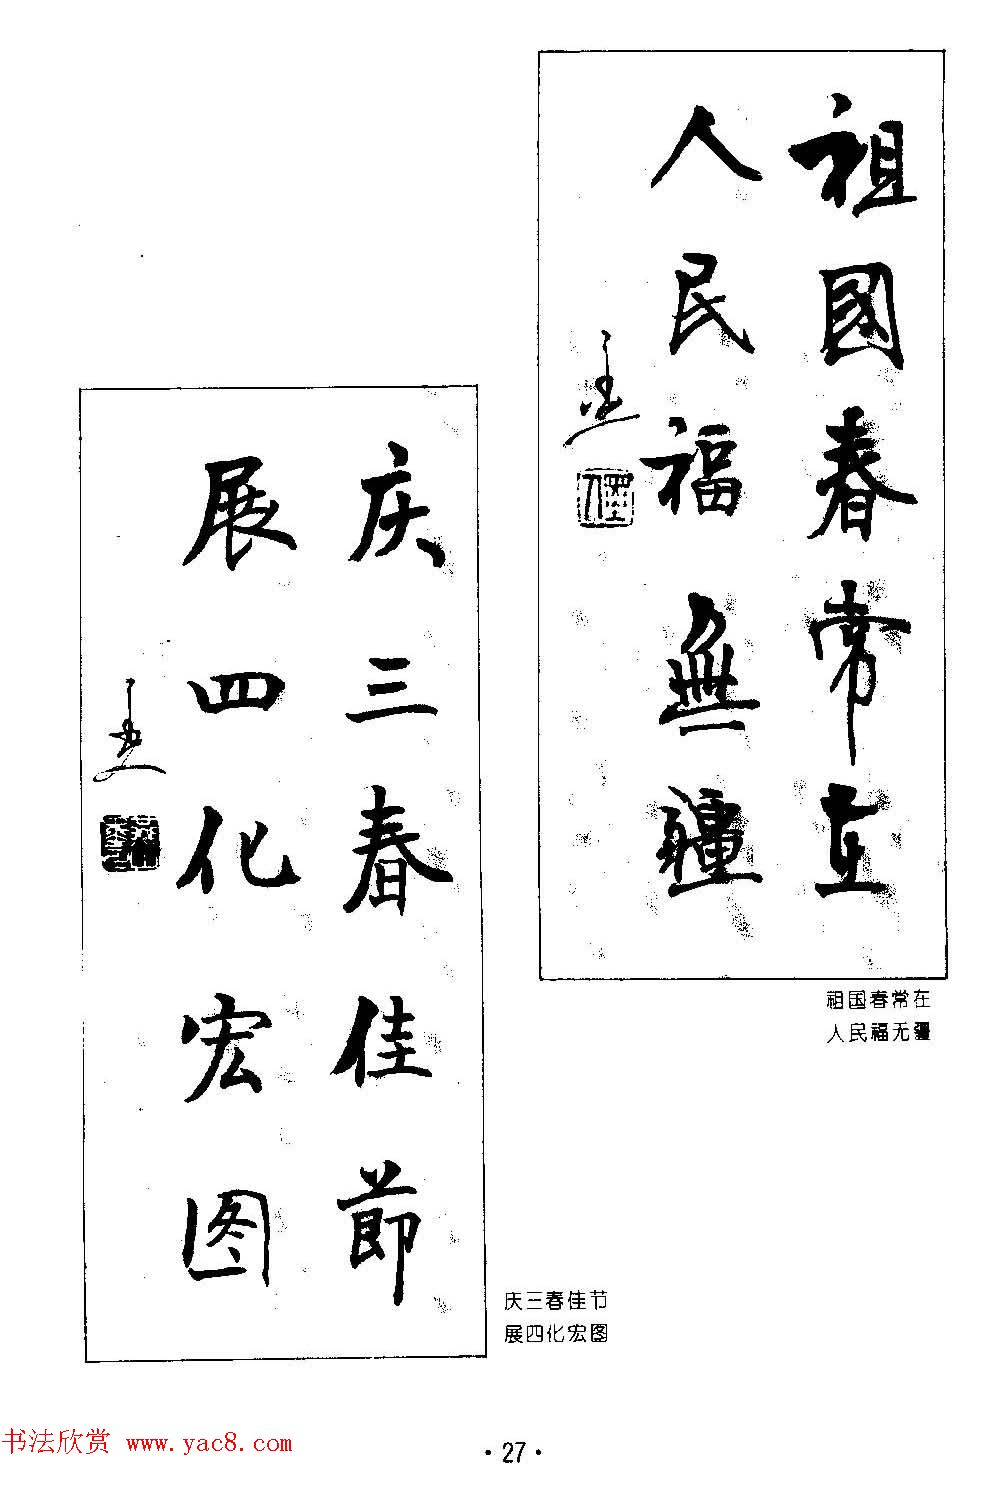 祖國春常在
人民福無疆
祖国春常在
人民福无疆
庆三春佳節
展四化宏图
庆三春佳节
展四化宏图
书法欣赏 www.yac8.com
·27·